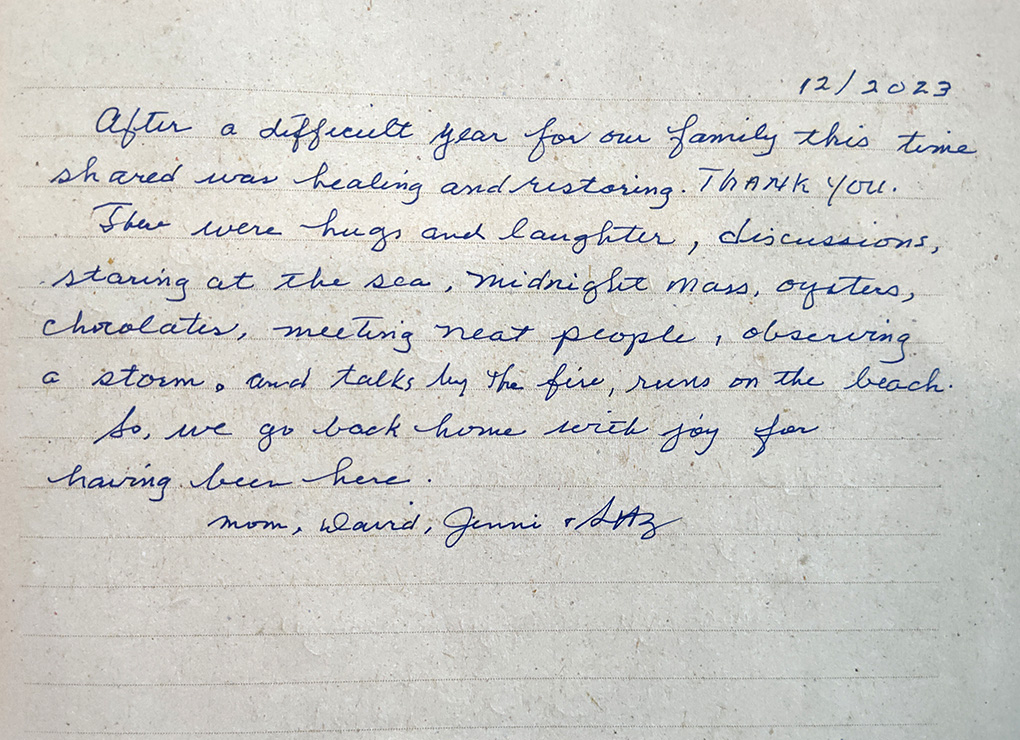 12/2023
After a difficult year for our family this time
shared was healing and restoring. THANK YOU.
There were hugs and laughter, discussions,
staring at the sea, midnight mass, oysters,
chocolates, meeting neat people, observing
a storm, and talks by the fire, runs on the beach.
So, we go back home with joy for
having been here.
mom, David, Jenni +